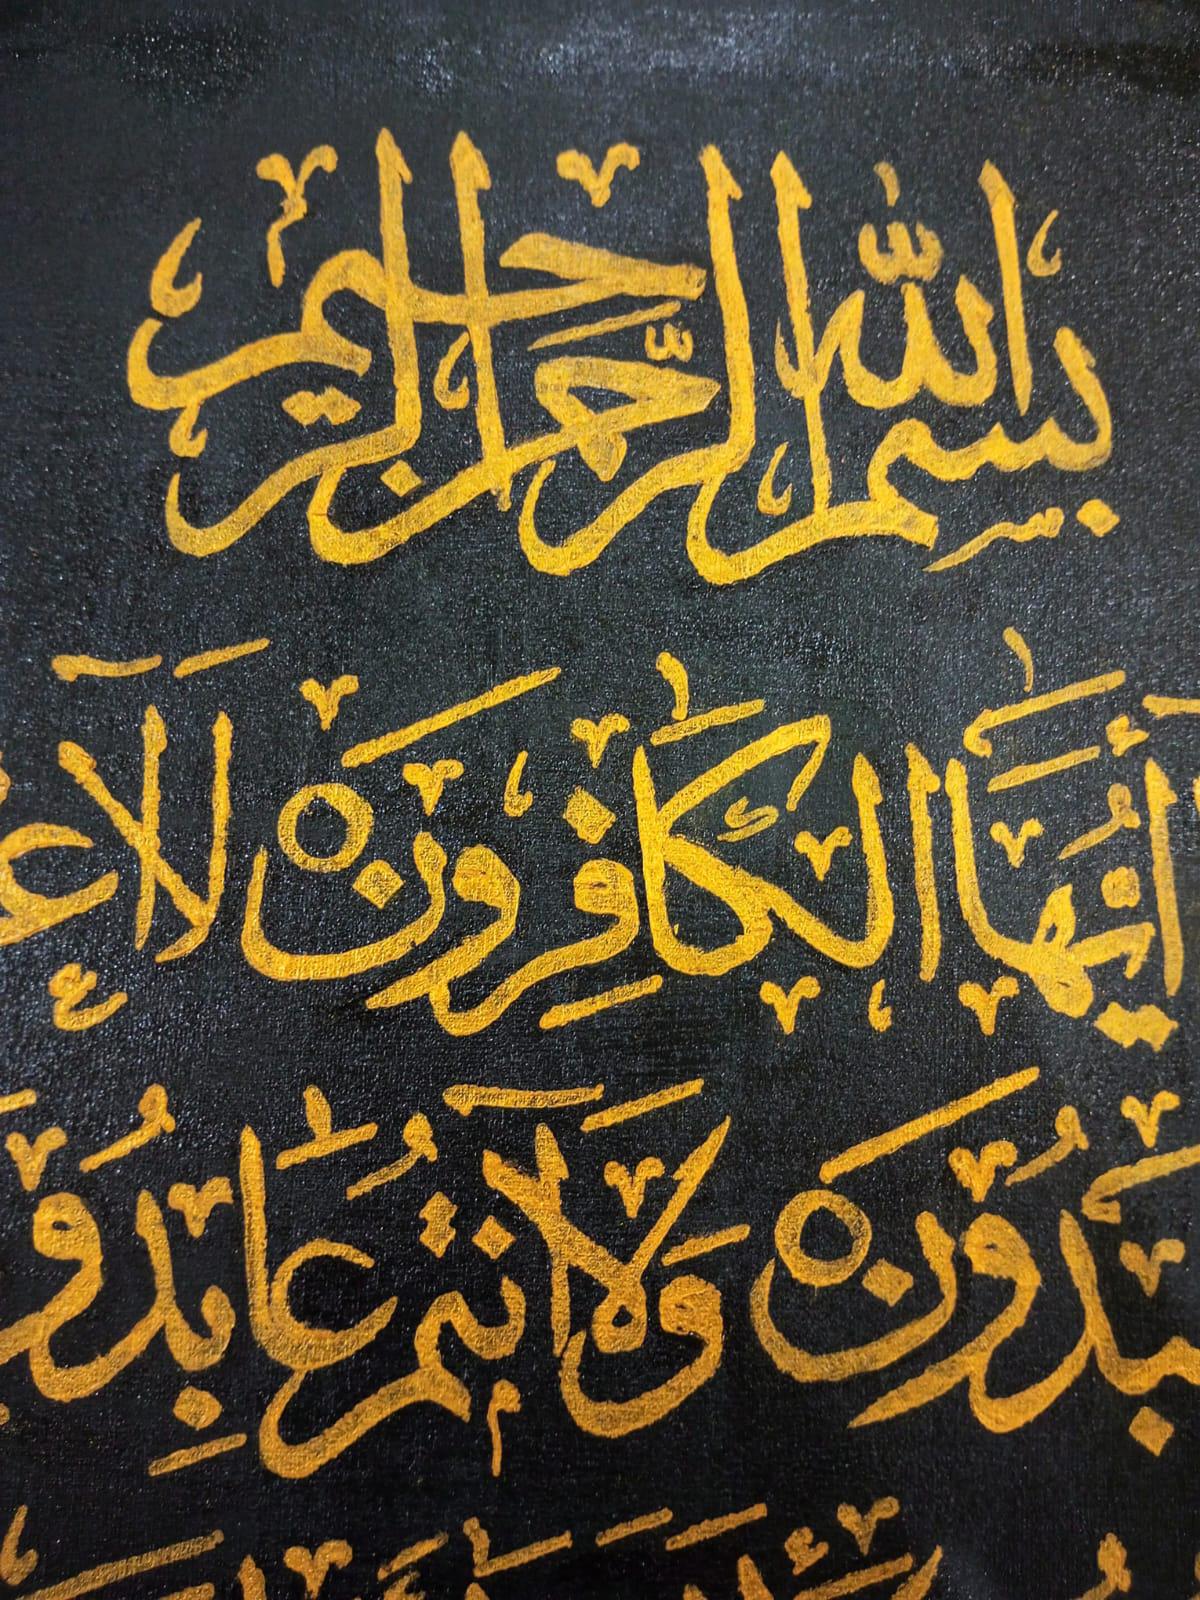 بسم الله الرحمن الرحيم
أَيُّهَا الْكَافِرُونَ لَآ
دُونَ وَلَآ أَنتُمْ عَابِدُو